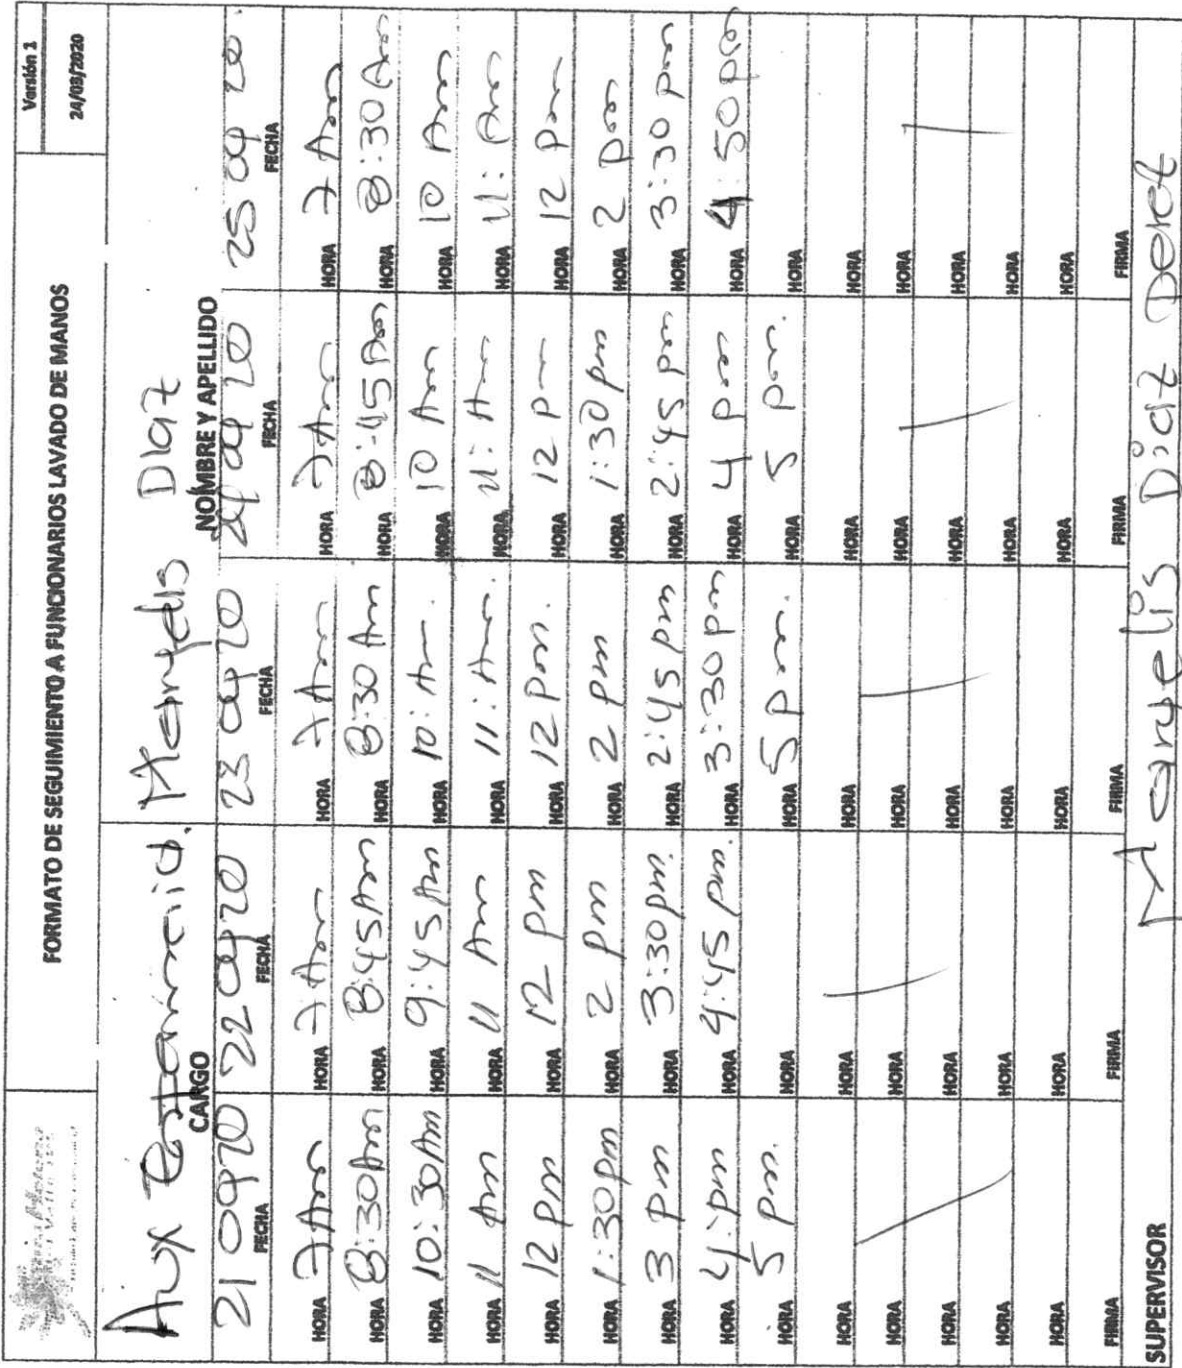 FORMATO DE SEGUIMIENTO A FUNCIONARIOS LAVADO DE MANOS
Versión 1
24/03/2020
Aux Manyelis Diaz
CARGO NOMBRE Y APELLIDO
21 04 20 22 04 20 23 04 20 24 04 20 25 04 20
FECHA FECHA FECHA FECHA FECHA
HORA 7 Am HORA 7 Am HORA 7 Am HORA 7 Am HORA 7 Am
HORA 8:30 Am HORA 8:45 Am HORA 8:30 Am HORA 8:45 Am HORA 8:30 Am
HORA 10:30 Am HORA 9:45 Am HORA 10: Am. HORA 10 Am HORA 10 Am
HORA 11 Am HORA 11 Am HORA 11: Am. HORA 11: Am HORA 11: Am
HORA 12 pm HORA 12 pm HORA 12 pm. HORA 12 pm HORA 12 pm
HORA 1:30 pm HORA 2 pm HORA 2 pm HORA 1:30 pm HORA 2 pm
HORA 3 pm HORA 3:30 pm. HORA 2:45 pm HORA 2:45 pm HORA 3:30 pm
HORA 4: pm HORA 4:45 pm. HORA 3:30 pm HORA 4 pm HORA 4:50 pm
HORA 5 pm. HORA HORA 5 pm. HORA 5 pm. HORA
HORA HORA HORA HORA HORA
HORA HORA HORA HORA HORA
HORA HORA HORA HORA HORA
HORA HORA HORA HORA HORA
HORA HORA HORA HORA HORA
FIRMA FIRMA FIRMA FIRMA FIRMA
SUPERVISOR Manyelis Diaz